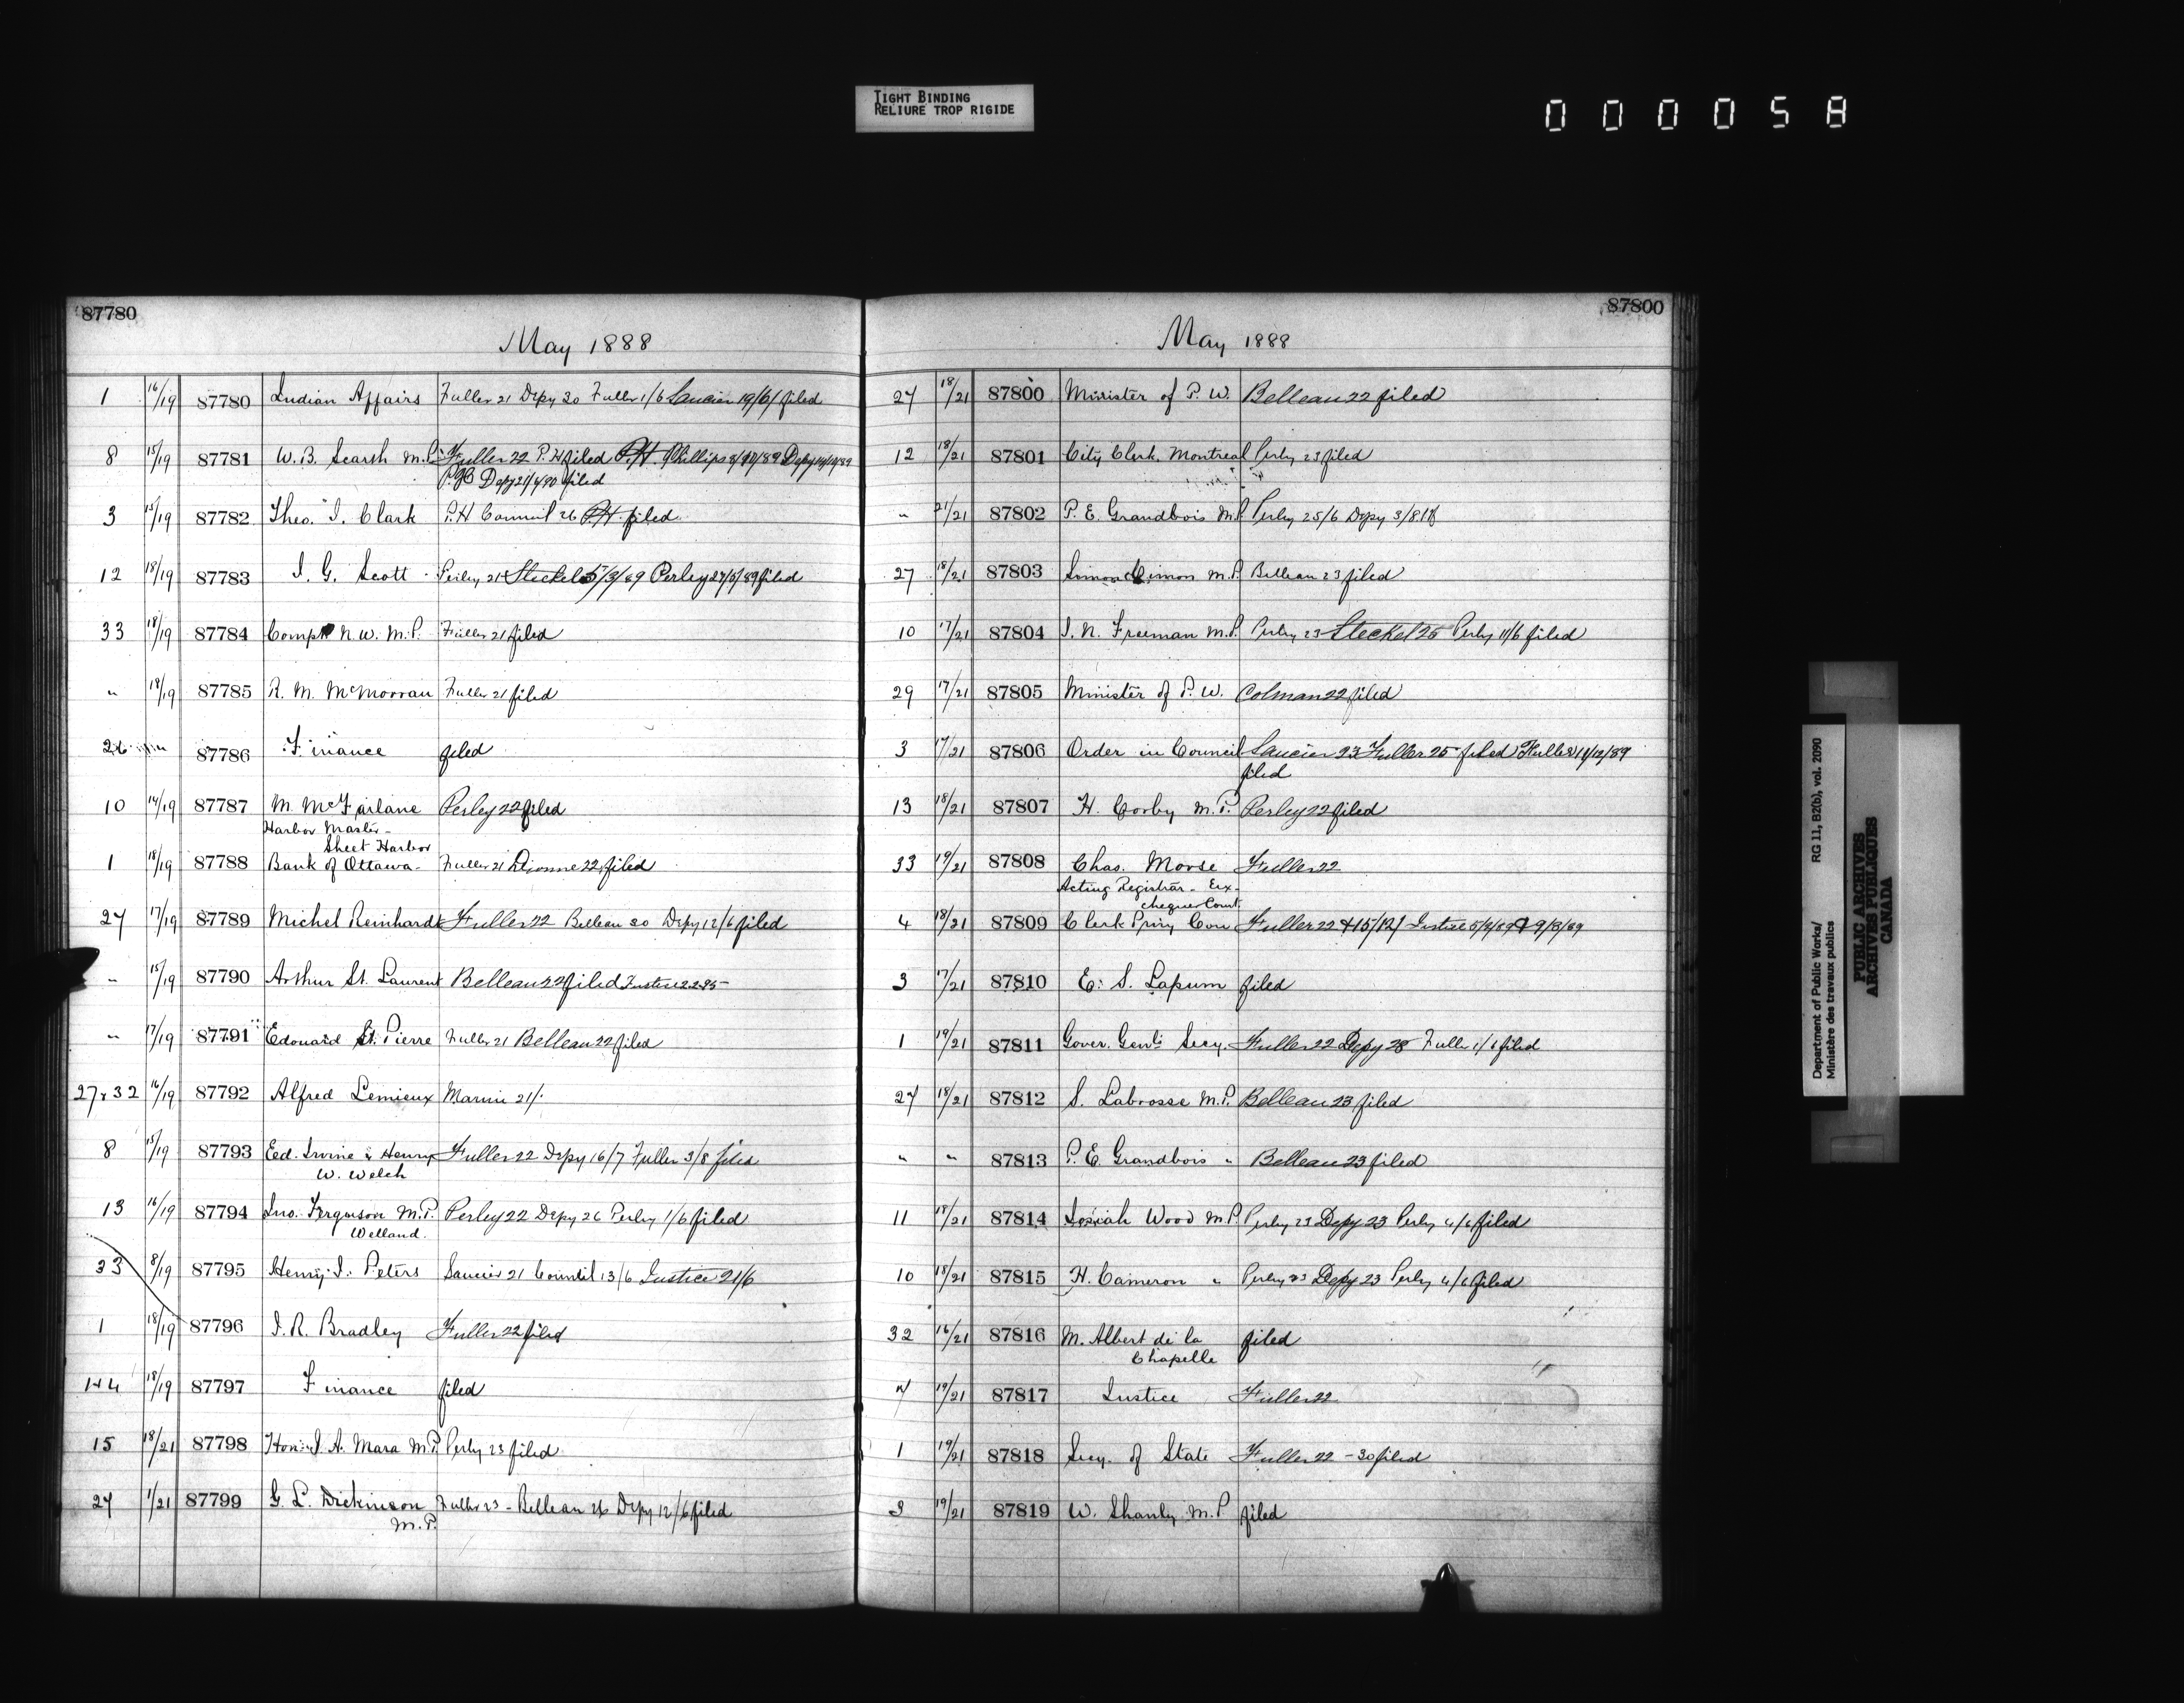 TIGHT BINDING
RELIURE TROP RIGIDE
000058
87780
May 1888
1 16/19 87780 Indian Affairs Fuller 21 Depy 30 Fuller 1/6 Saucier 19/6/ filed
8 15/19 87781 W. B. Scarth M.P. Fuller 22 P.H filed P.H. Phillips 8/10/89 Depy
Depy 21/4/90 filed
3 15/19 87782 Theo. J. Clark P.H Council 26 P.H. filed
12 18/19 87783 J. G. Scott Perley 21 Steckel 5/3/89 Perley 27/5/89 filed
33 18/19 87784 Compt N.W.M.P. Fuller 21 filed
" 18/19 87785 R. M. McMorran Fuller 21 filed
26 87786 Finance filed
10 14/19 87787 M. McFarlane Perley 22 filed
Harbor Master -
Sheet Harbor
1 18/19 87788 Bank of Ottawa - Fuller 21 Dionne 22 filed
27 17/19 87789 Michel Reinhardt Fuller 22 Belleau 30 Depy 12/6 filed
" 15/19 87790 Arthur St. Laurent Belleau 22 filed Justice 22-95-
" 17/19 87791 Edouard St. Pierre Fuller 21 Belleau 22 filed
27 & 32 16/19 87792 Alfred Lemieux Marine 21/.
8 15/19 87793 Ed. Irvine & Henry Fuller 22 Depy 16/7 Fuller 3/8 filed
W. Welch
13 16/19 87794 Jno. Ferguson M.P. Perley 22 Depy 26 Perley 1/6 filed
Welland.
33 8/19 87795 Henry J. Peters Saucier 21 Council 13/6 Justice 21/6
1 18/19 87796 J. R. Bradley Fuller 22 filed
1+4 18/19 87797 Finance filed
15 18/21 87798 Hon. J. A. Mara M.P. Perley 23 filed
27 1/21 87799 G. L. Dickinson Fuller 23 - Belleau 26 Depy 12/6 filed
M.P.
87800
May 1888
27 18/21 87800 Minister of P. W. Belleau 22 filed
12 18/21 87801 City Clerk, Montreal Perley 23 filed
" 21/21 87802 P. E. Grandbois M.P. Perley 25/6 Depy 3/8
27 18/21 87803 Simon Cimon M.P. Belleau 23 filed
10 17/21 87804 J. N. Freeman M.P. Perley 23 Steckel 25 Perley 11/6 filed
29 17/21 87805 Minister of P. W. Colman 22 filed
3 17/21 87806 Order in Council Saucier 23 Fuller 25 filed Fuller 11/12/89
filed
13 18/21 87807 H. Corby M.P. Perley 22 filed
33 19/21 87808 Chas. Morse Fuller 22
Acting Registrar - Ex-
chequer Court
4 18/21 87809 Clerk Privy Coun Fuller 22 + 15/12/ Justice 5/2/89 9/3/89
3 17/21 87810 E. S. Lapum filed
1 19/21 87811 Gover. Genls Secy. Fuller 22 Depy 28 Fuller 1/6 filed
27 18/21 87812 S. Labrosse M.P. Belleau 23 filed
" " 87813 P. E. Grandbois " Belleau 23 filed
11 18/21 87814 Josiah Wood M.P. Perley 23 Depy 23 Perley 4/6 filed
10 18/21 87815 H. Cameron " Perley 23 Depy 23 Perley 4/6 filed
32 16/21 87816 M. Albert de la filed
Chapelle
7 19/21 87817 Justice Fuller 22
1 19/21 87818 Secy. of State Fuller 22 - 30 filed
3 19/21 87819 W. Shanly M.P. filed
Department of Public Works/
Ministère des travaux publics
RG 11, B2(b), vol. 2090
PUBLIC ARCHIVES
ARCHIVES PUBLIQUES
CANADA